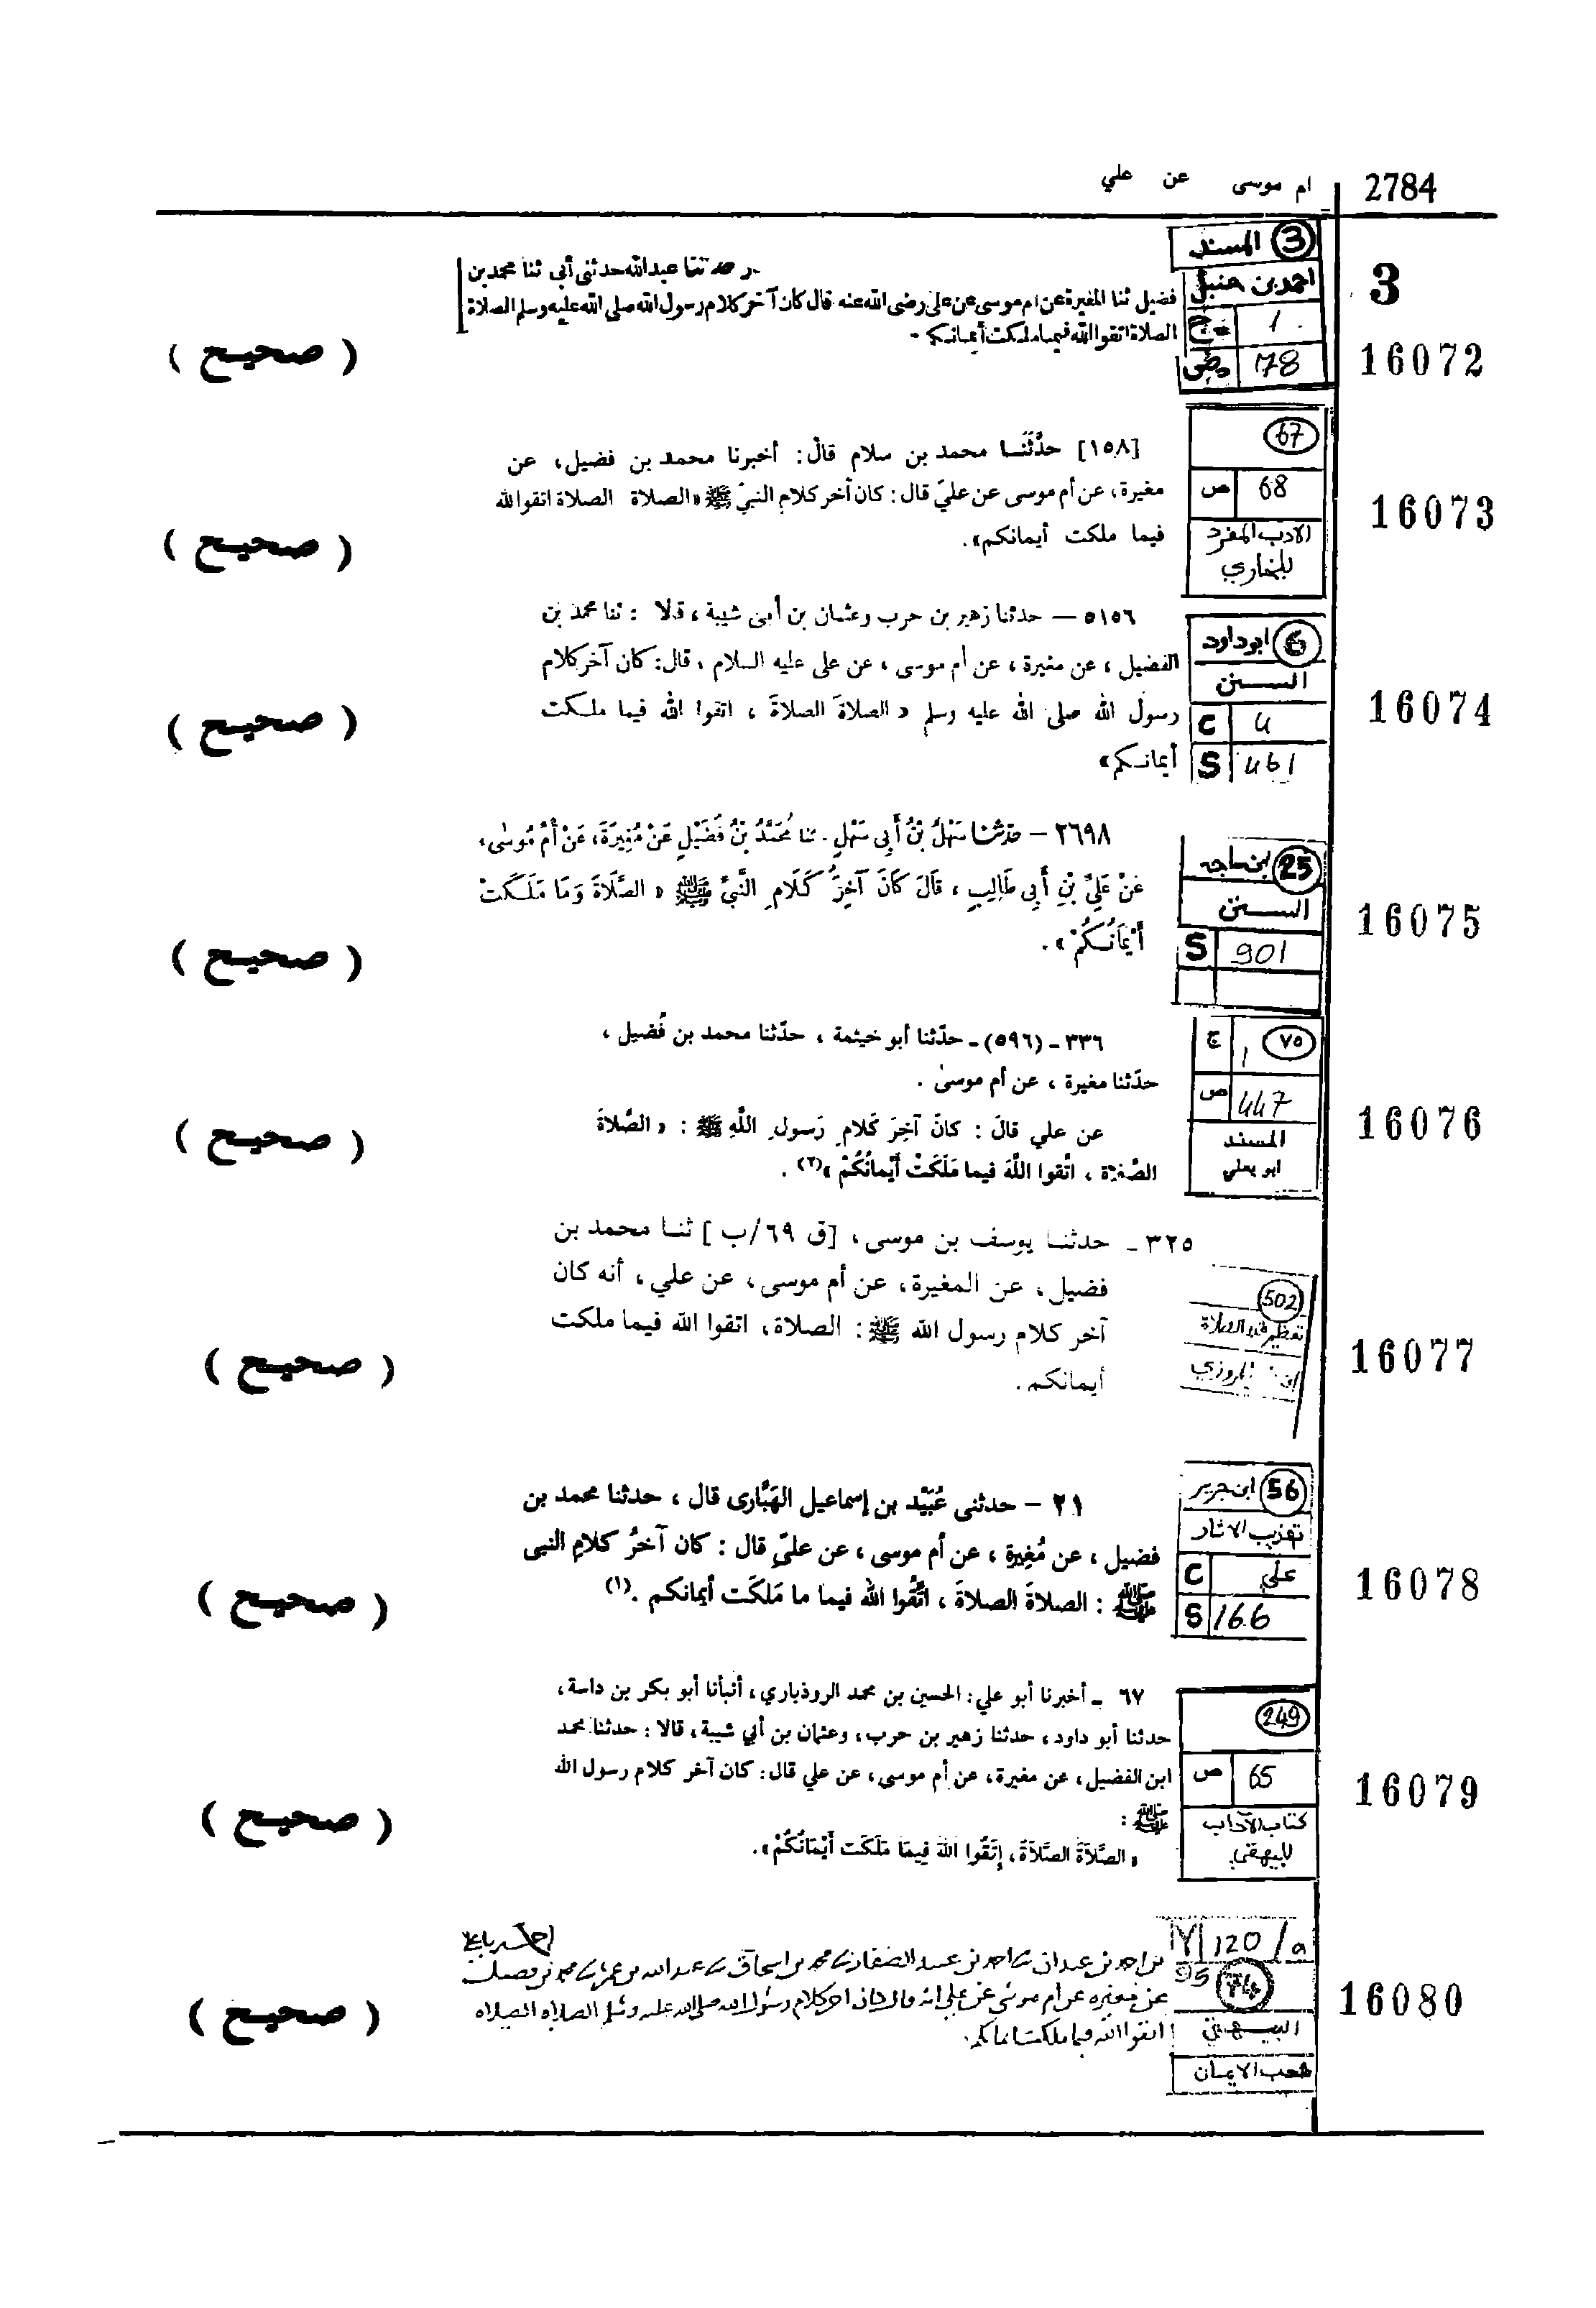 2784 ام موسى عن علي
3
16072
③ المسند
احمد بن حنبل
ج 1
ص 178
حدثنا عبد الله حدثنى أبى ثنا محمد بن
فضيل ثنا المغيرة عن ام موسى عن على رضى الله عنه قال كان آخر كلام رسول الله صلى الله عليه وسلم الصلاة
الصلاة اتقوا الله فيما ملكت أيمانكم -
( صحيح )
16073
67
ص 68
الادب المفرد
للبخاري
[١٥٨] حدَّثَنا محمد بن سلام قال: أخبرنا محمد بن فضيل، عن
مغيرة، عن أم موسى عن عليّ قال: كان آخر كلام النبيّ ﷺ «الصلاة الصلاة اتقوا الله
فيما ملكت أيمانكم».
( صحيح )
16074
6 ابو داود
السنن
C 4
S 461
٥١٥٦ — حدثنا زهير بن حرب وعثمان بن أبى شيبة ، قالا : ثنا محمد بن
الفضيل ، عن مغيرة ، عن أم موسى ، عن على عليه السلام ، قال: كان آخر كلام
رسول الله صلى الله عليه وسلم « الصلاةَ الصلاةَ ، اتقوا الله فيما ملكت
أيمانكم»
( صحيح )
16075
25 ابن ماجه
السنن
S 901
٢٦٩٨ – حدّثنا سَهْلُ بْنُ أَبِى سَهْلٍ . ثنا مُحَمَّدُ بْنُ فُضَيْلٍ عَنْ مُغِيرَةَ، عَنْ أُمِّ مُوسَى،
عَنْ عَلِيِّ بْنِ أَبِى طَالِبٍ ، قَالَ كَانَ آخِرُ كَلَامِ النَّبِيِّ ﷺ « الصَّلَاةَ وَمَا مَلَكَتْ
أَيْمَانُكُمْ » .
( صحيح )
16076
٧٥ ج 1
ص 447
المسند
ابو يعلى
٣٣٦ - (٥٩٦) - حدّثنا أبو خيثمة ، حدّثنا محمد بن فُضيل ،
حدّثنا مغيرة ، عن أم موسىٰ .
عن علي قالَ : كانَ آخِرَ كَلامِ رَسولِ اللَّهِ ﷺ : « الصَّلاةَ
الصَّلاةَ ، اتَّقوا اللَّهَ فيما مَلَكَتْ أَيْمانُكُمْ »(٢) .
( صحيح )
16077
502
تعظيم قدر الصلاة
المروزي
٣٢٥ - حدثنا يوسف بن موسى، [ق ٦٩/ب] ثنا محمد بن
فضيل، عن المغيرة، عن أم موسى، عن علي، أنه كان
آخر كلام رسول الله ﷺ: الصلاة، اتقوا الله فيما ملكت
أيمانكم.
( صحيح )
16078
56 ابن جرير
تهذيب الاثار
C علي
S 166
٢١ – حدثنى عُبَيْد بن إسماعيل الهَبَّارى قال ، حدثنا محمد بن
فضيل ، عن مُغِيرة ، عن أم موسى ، عن علىّ قال : كان آخرُ كلامِ النبى
ﷺ : الصلاةَ الصلاةَ ، اتَّقُوا الله فيما ما مَلكَت أيمانكم .(١)
( صحيح )
16079
249
ص 65
كتاب الآداب
للبيهقي
٦٧ - أخبرنا أبو علي: الحسين بن محمد الروذباري، أنبأنا أبو بكر بن داسة،
حدثنا أبو داود، حدثنا زهير بن حرب، وعثمان بن أبي شيبة، قالا: حدثنا محمد
ابن الفضيل، عن مغيرة، عن أم موسى، عن علي قال: كان آخر كلام رسول الله
ﷺ:
« الصَّلاَةَ الصَّلاَةَ، اِتَّقُوا اللهَ فِيمَا مَلَكَت أَيْمَانُكُمْ».
( صحيح )
16080
120/a
95 74
البيهقي
شعب الايمان
بن احمد بن عبدان احمد بن عبيد الصفار محمد بن اسحاق عبد الله بن عمر محمد بن فضيل
عن مغيره عن ام موسى عن علي انه قال كان اخر كلام رسول الله صلى الله عليه وسلم الصلاه الصلاه
اتقوا الله فيما ملكت ايمانكم
( صحيح )